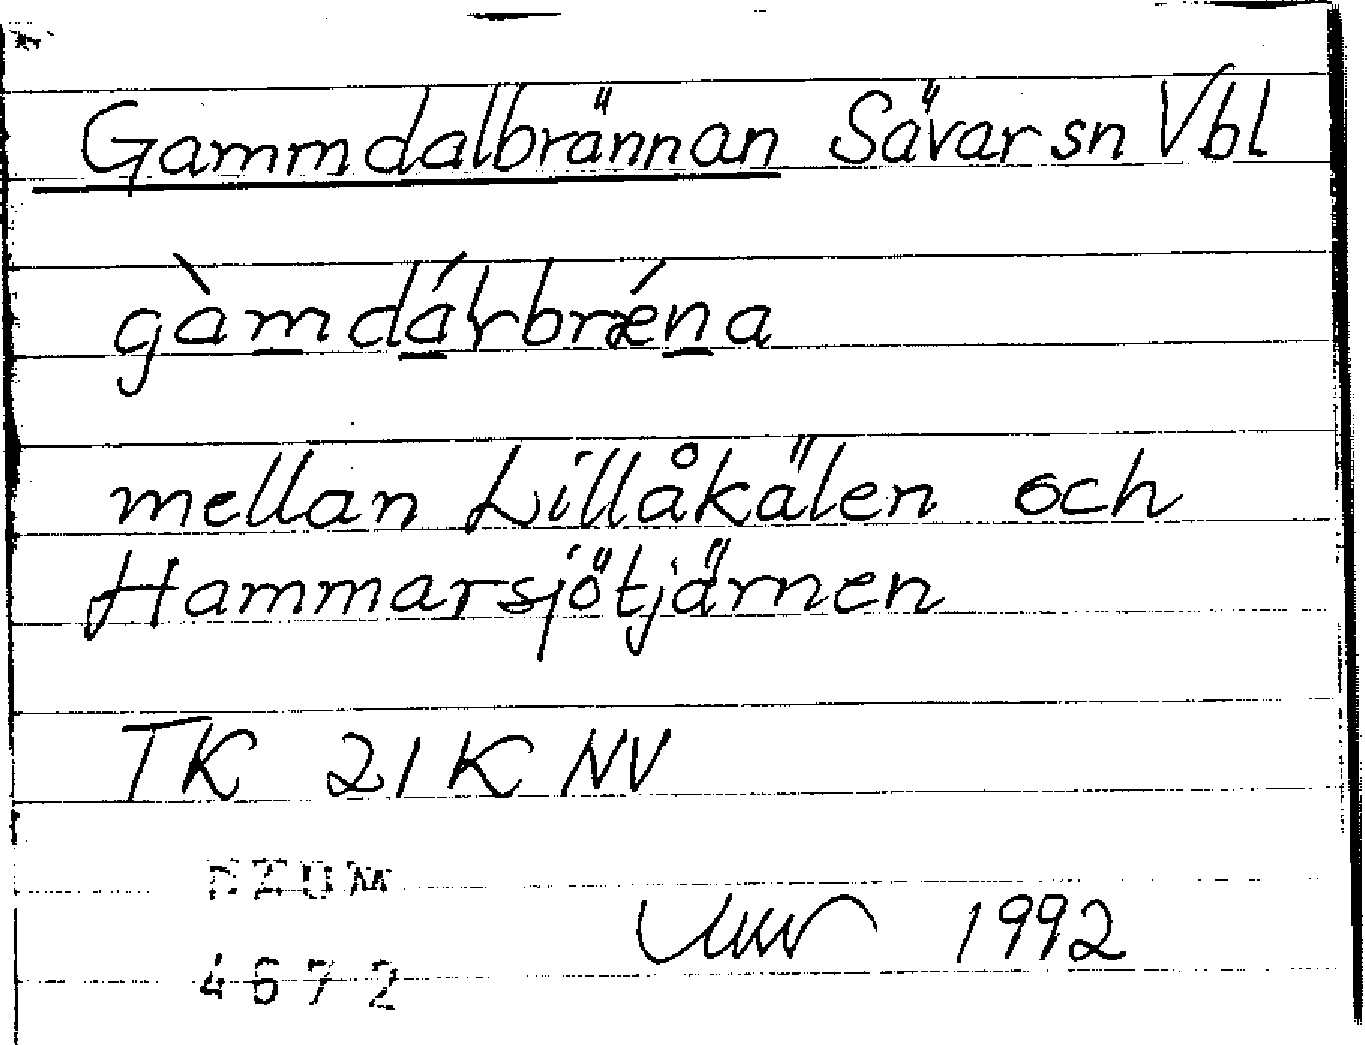 Gammdalbrännan Sävar sn Vbl
gàmdárbrǽna
mellan Lillåkälen och
Hammarsjötjärnen
TK 21K NV
DZOM
1992
4672